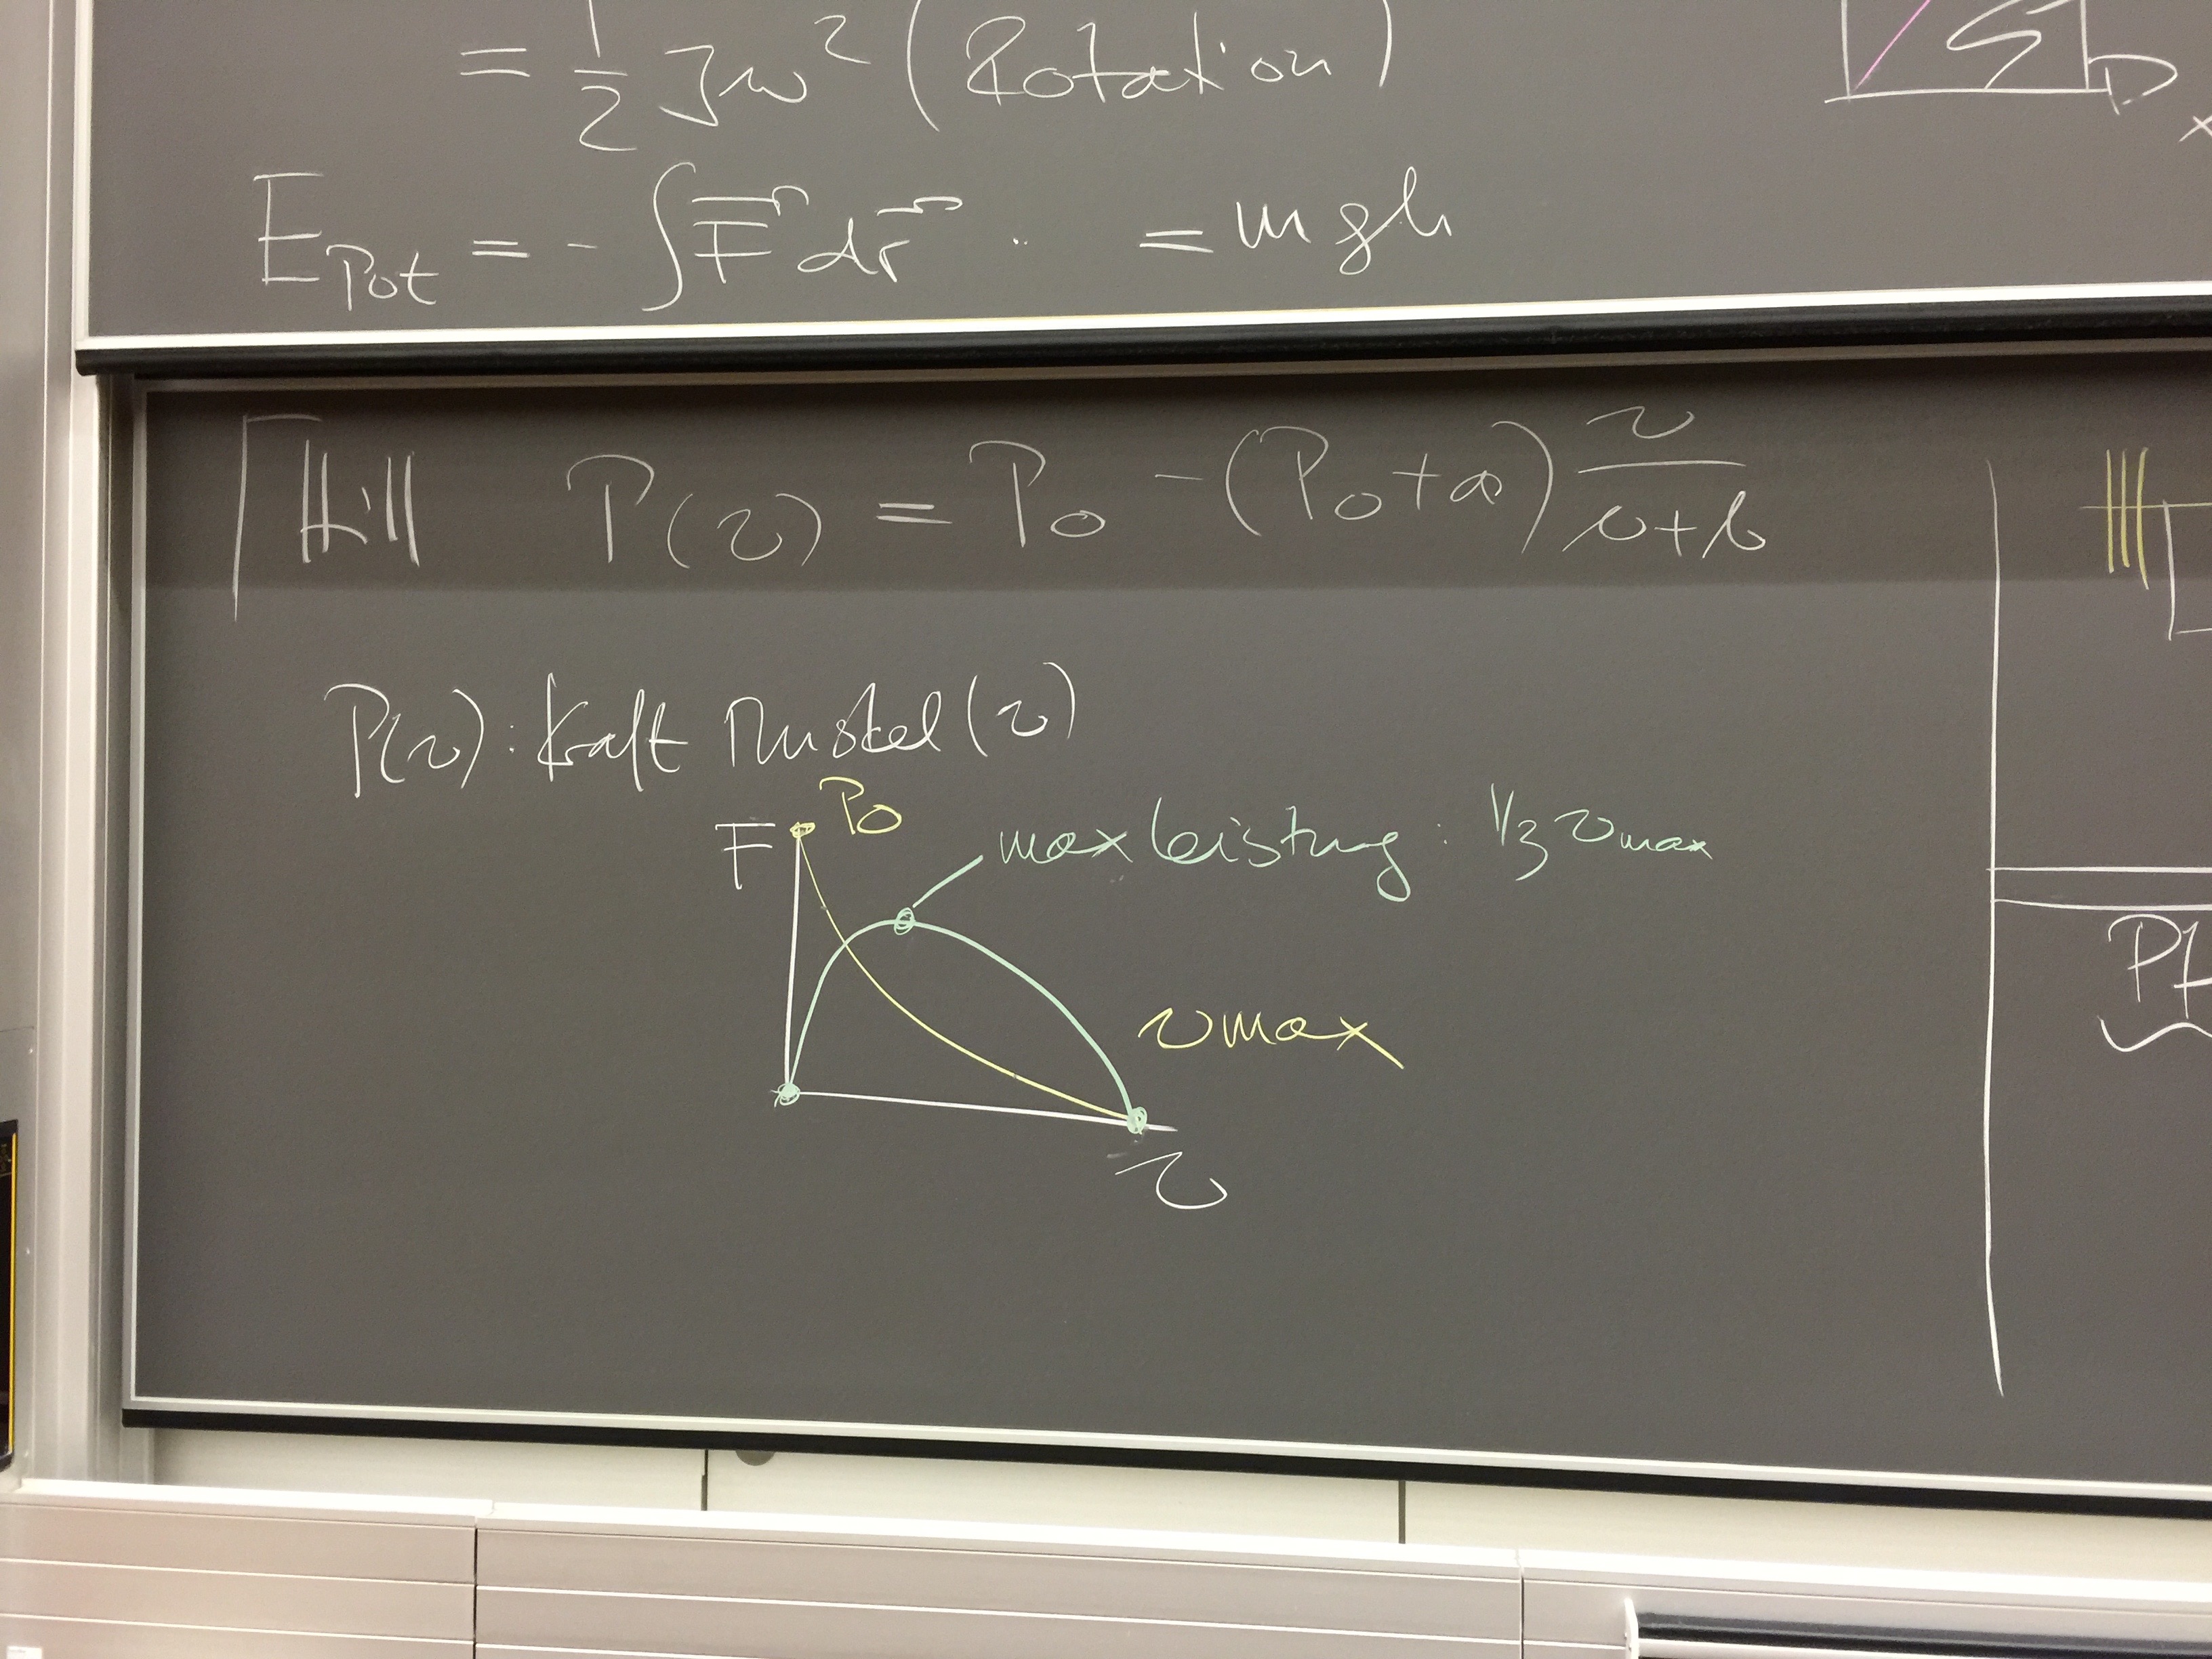 = 1/2 Jω² (Rotation)
D
x
E Pot = - ∫ F⃗ dr⃗ = mgh
Hill P(v) = P₀ - (P₀ + a) v/(v+b)
P(v): Kraft Muskel (v)
P₀
F
max Leistung: 1/3 vmax
vmax
v